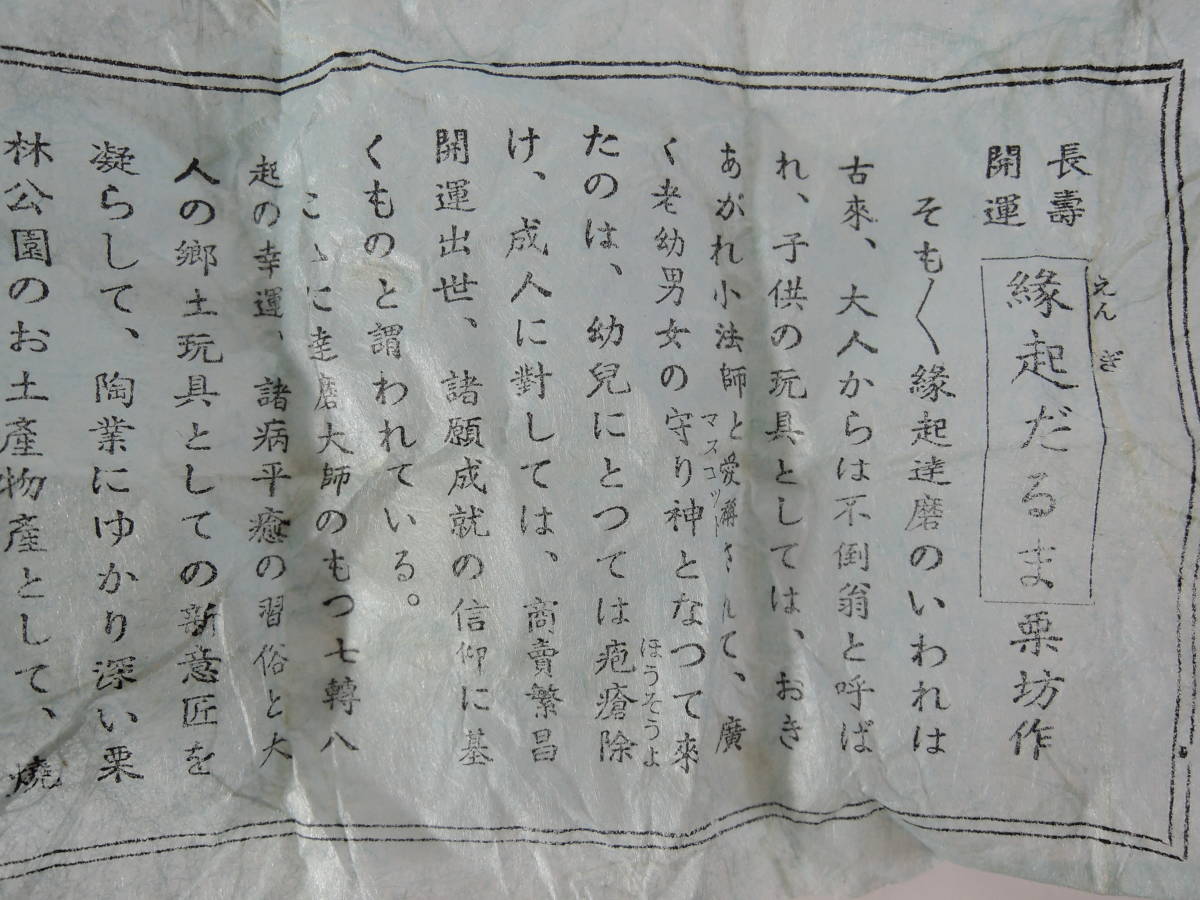 長壽
開運
縁起だるま 栗坊作
えんぎ
そも〱縁起達磨のいわれは
古來、大人からは不倒翁と呼ば
れ、子供の玩具としては、おき
あがれ小法師と愛稱されて、廣
く老幼男女の守り神となつて來
マスコット
たのは、幼兒にとつては疱瘡除
ほうそうよ
け、成人に對しては、商賣繁昌
開運出世、諸願成就の信仰に基
くものと謂われている。
こゝに達磨大師のもつ七轉八
起の幸運、諸病平癒の習俗と大
人の郷土玩具としての新意匠を
凝らして、陶業にゆかり深い栗
林公園のお土産物産として、燒